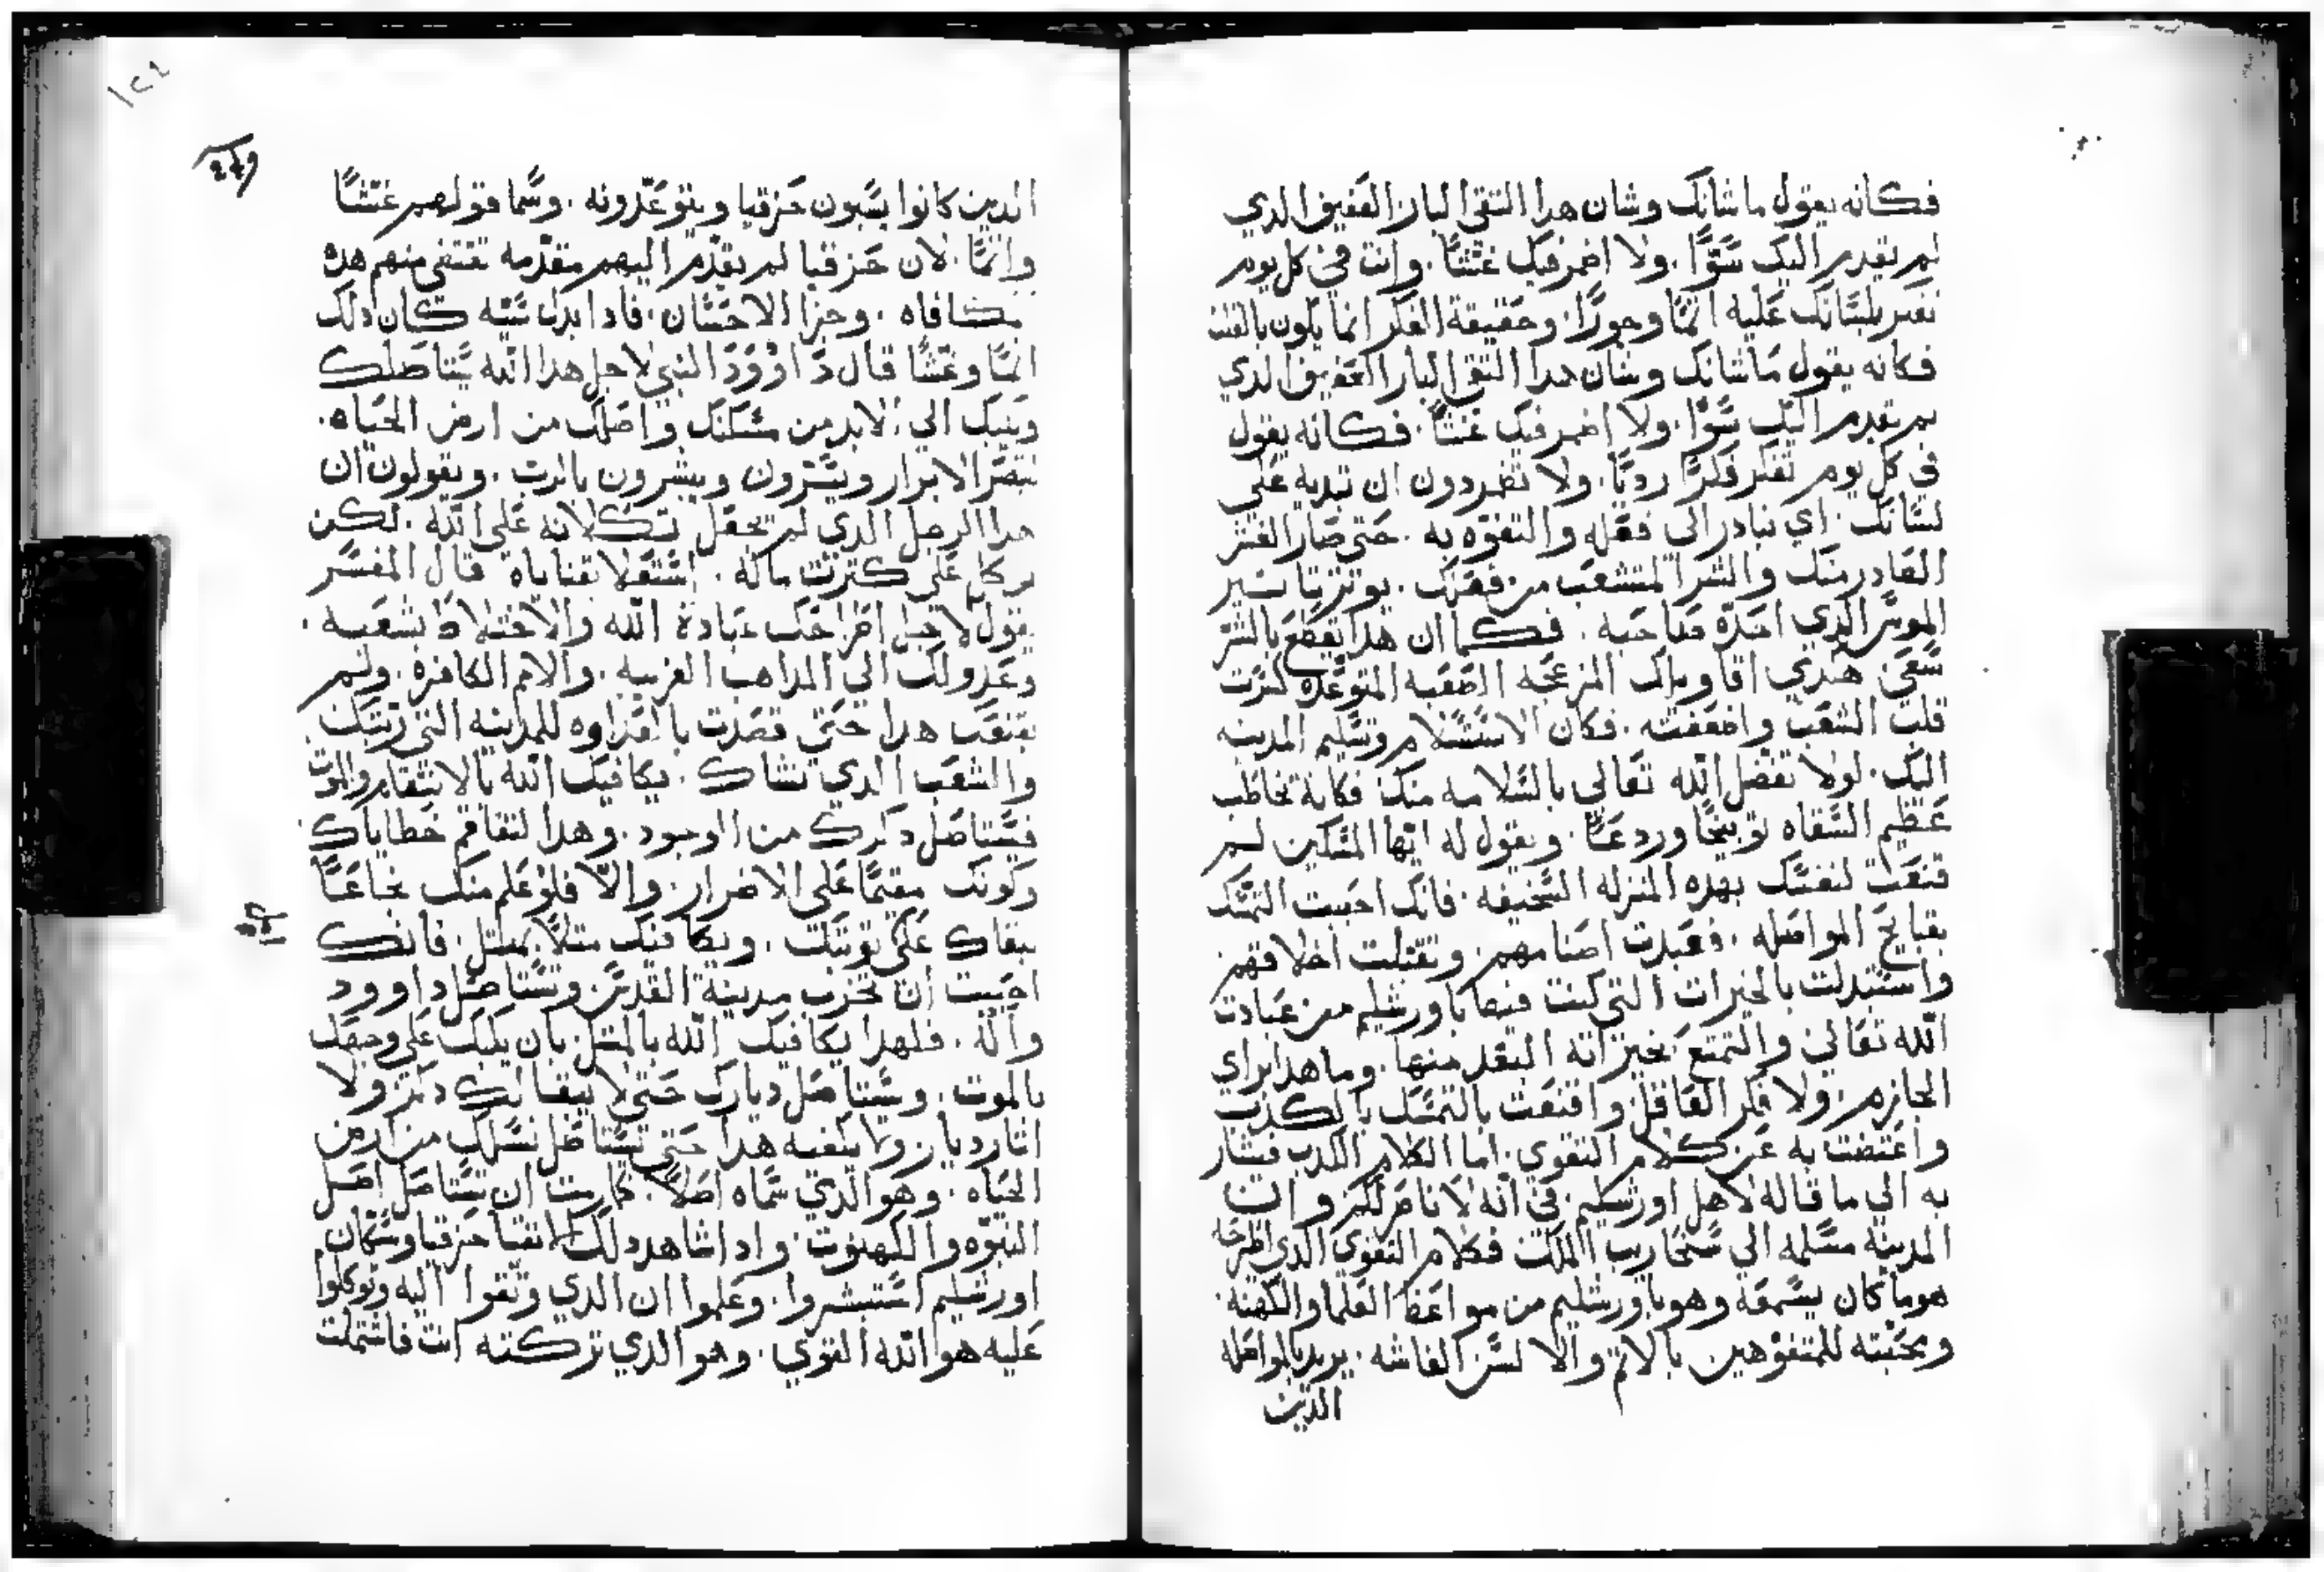 فكانه يقول ما شانك وشان هدا التقي البار العفيف الدي
لم يقدم اليك سَوًّا. ولا اضمر فيك غشًّا. وانت في كل يوم
بلسَانك عَليه اثمًا وجورًا. وحَقيقة الفكر انما يكون بالقلب
فكانه يقول مَا شانك وشان هدا التقي البار العَفيف الدي
لم يقدم اليك سَوًّا. ولا اضمر فيك غشًّا. فكانه يقول
في كل يوم تفكر فكرًا رديًا. ولا تضردون ان تبديه عَلي
لسَانك. اي تبادر الي فعَله والتفوّه به. حَتي صَار الفكر
الصَادر منك والشر المتشعب من فمك. يوتر تاتير
الموسَ الدي احَدّه صَاحَبه. فكما ان هدا يقطع بالشر
سَعَي هكدي اقاويلك المزعجه الصَعَبه المتوعّده كسَرت
قلب الشعَب واضعَفته. فكان الاستسْلام وتسَليم المدينه
اليك. لولا تفضل الله تعَالي بالسَلامه منك فكانه يخاطب
عَظيم السَقاه توبيخًا وردعًا. ويقول له ايها المسَكين لم
تقنعَ لنفسَك بهده المنزله السَخيفه. فانك احَببت التمسَك
بقبايح المواصَله. فعَبدت اصَنامهم. وتقبلت اخلاقهم
واستبدلت بالخيرات التي كنت فيها باورشليم من عَبادت
الله تعَالي والتمتع بخيراته البعَد منها. وما هدا براي
الحازم. ولا فكر العَاقل. واقتنعَت بالتمسَك بالكدب
واعَتضت به عَن كلام التقوي. اما الكلام الكدب فيشار
به الي ما قاله لاهل اورشليم. في انه لا ناصَر لكم وان
المدينه مسَلمه الي سَنحاريب الملك فكلام التقوي الدي اطرحَه
هو ما كان يسَمعَه وهو باورشليم من مواعَظ العَلما والكهنه.
ومحَبته للمتفوّهين بالاتم والالسَن الغاشه. يريد بالمواصَله
الدين
الدين كانوا يسَبون حَزقيا ويتوعَّدونه. وسَّما قولهم غشًّا
واتمًا. لان حَزقيا لم يقدّم اليهم مقدّمه تقتضي منهم هده
مكافاه. وجزا الاحسَان. فادا بدل شيّه كان دلك
اتمًا وغشًّا قال دَاوُودَ النبي لاجل هدا الله يسَتاصَلك
الي الابد من مسَكنك واصَلك من ارض الحَياه.
تبصَر الابرار ويسَرون ويبشرون بالرب. ويقولون ان
هدا الرجل الدي لم يجعَل تكلانه عَلي الله. لكن
توكل عَلي كترت ماله. قال المفسَّر
يقول لاجل اطراحَك عَبادة الله والاختلاط بشعَبه.
وعَدولك الي المداهب الغريبه. والامم الكافره. ولم
تقنعَ هدا حَتي قصَدت بالعَداوه للمدينه التي ربتك
والشعَب الدي نشاك. يكافيك الله بالانتقام والموت
فيسَتاصَل دكرك من الوجود. وهدا لتفاقم خطاياك
وكونك مقيمًا عَلي الاضرار. والا فلو عَلم منك نجاعَا
يبقاك عَلي توبتك. ويكافيك متلًا بمتل. فانك
احَببت ان تخرب مدينة القدسَ وتسَتاصَل داوود
وآله. فلهدا يكافيك الله بالمتل. بان يكبك عَلي وجهك
بالموت. وسَيتاصَل ديارك حَتي لا يبقا لك دكر ولا
اتار ديار. ولا يكفيه هدا حَتي يسَتاصَل نسَلك من ارض
الحَياه. وهو الدي سَماه اصَلًا. كما ان تسَتاصَل اصَل
النبوّه والكهنوت. وادا شاهد دلك اتقيا حَزقيا وسَكان
اورشليم استبشروا. وعَلموا ان الدي وتقوا اليه وتوكلوا
عَليه هو الله القوي. وهو الدي تركته انت فاشتملت